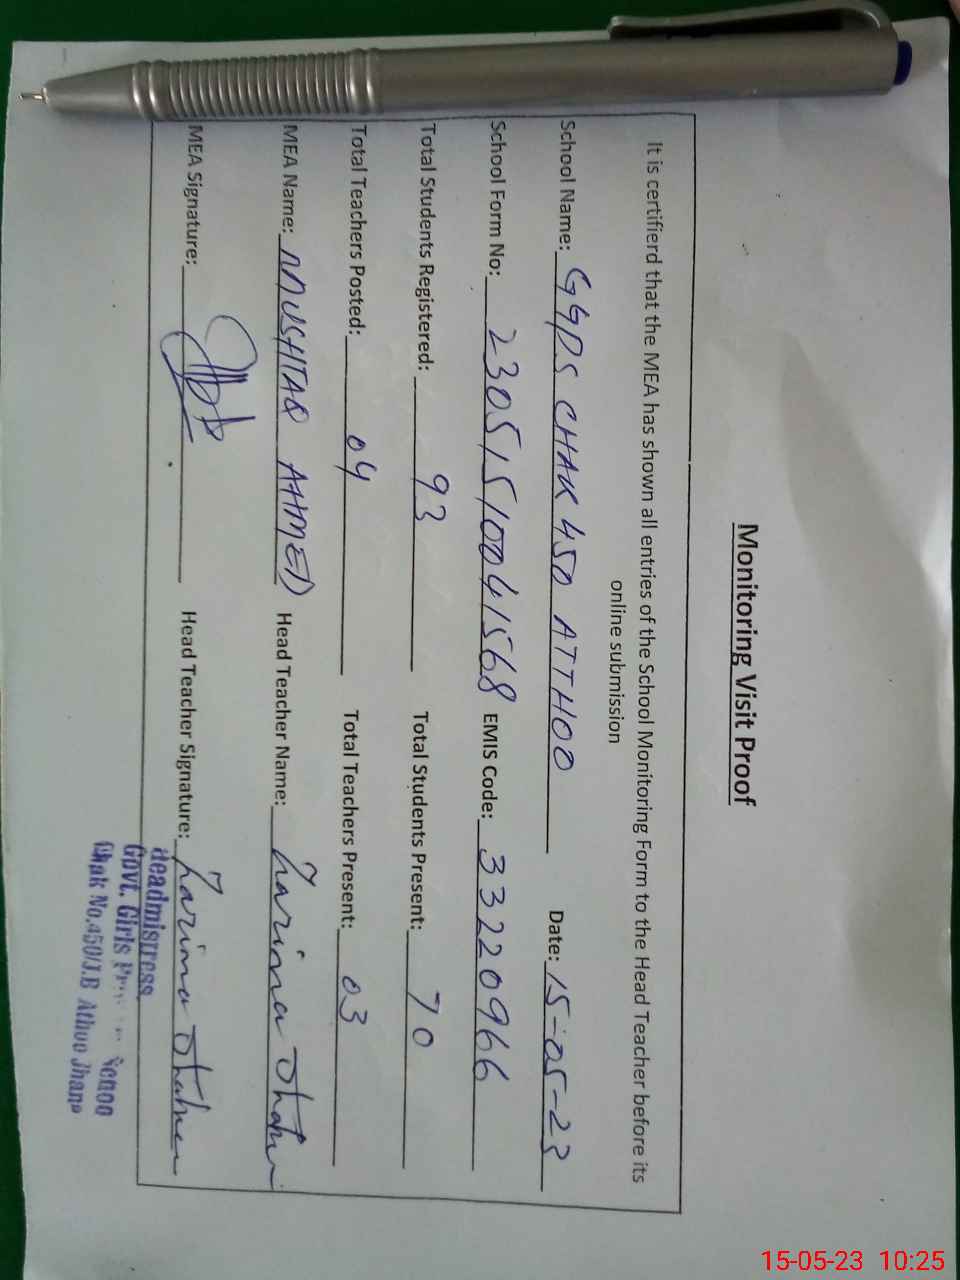 Monitoring Visit Proof
It is certifierd that the MEA has shown all entries of the School Monitoring Form to the Head Teacher before its
online submission
School Name: GGPS CHAK 450 ATTHOO Date: 15-05-23
School Form No: 23051510041568 EMIS Code: 33220966
Total Students Registered: 93 Total Students Present: 70
Total Teachers Posted: 04 Total Teachers Present: 03
MEA Name: MUSHTAQ AHMED Head Teacher Name:
MEA Signature: Head Teacher Signature:
Headmistress
Govt. Girls
Chak No.450/J.B Athoo Jhang
15-05-23 10:25